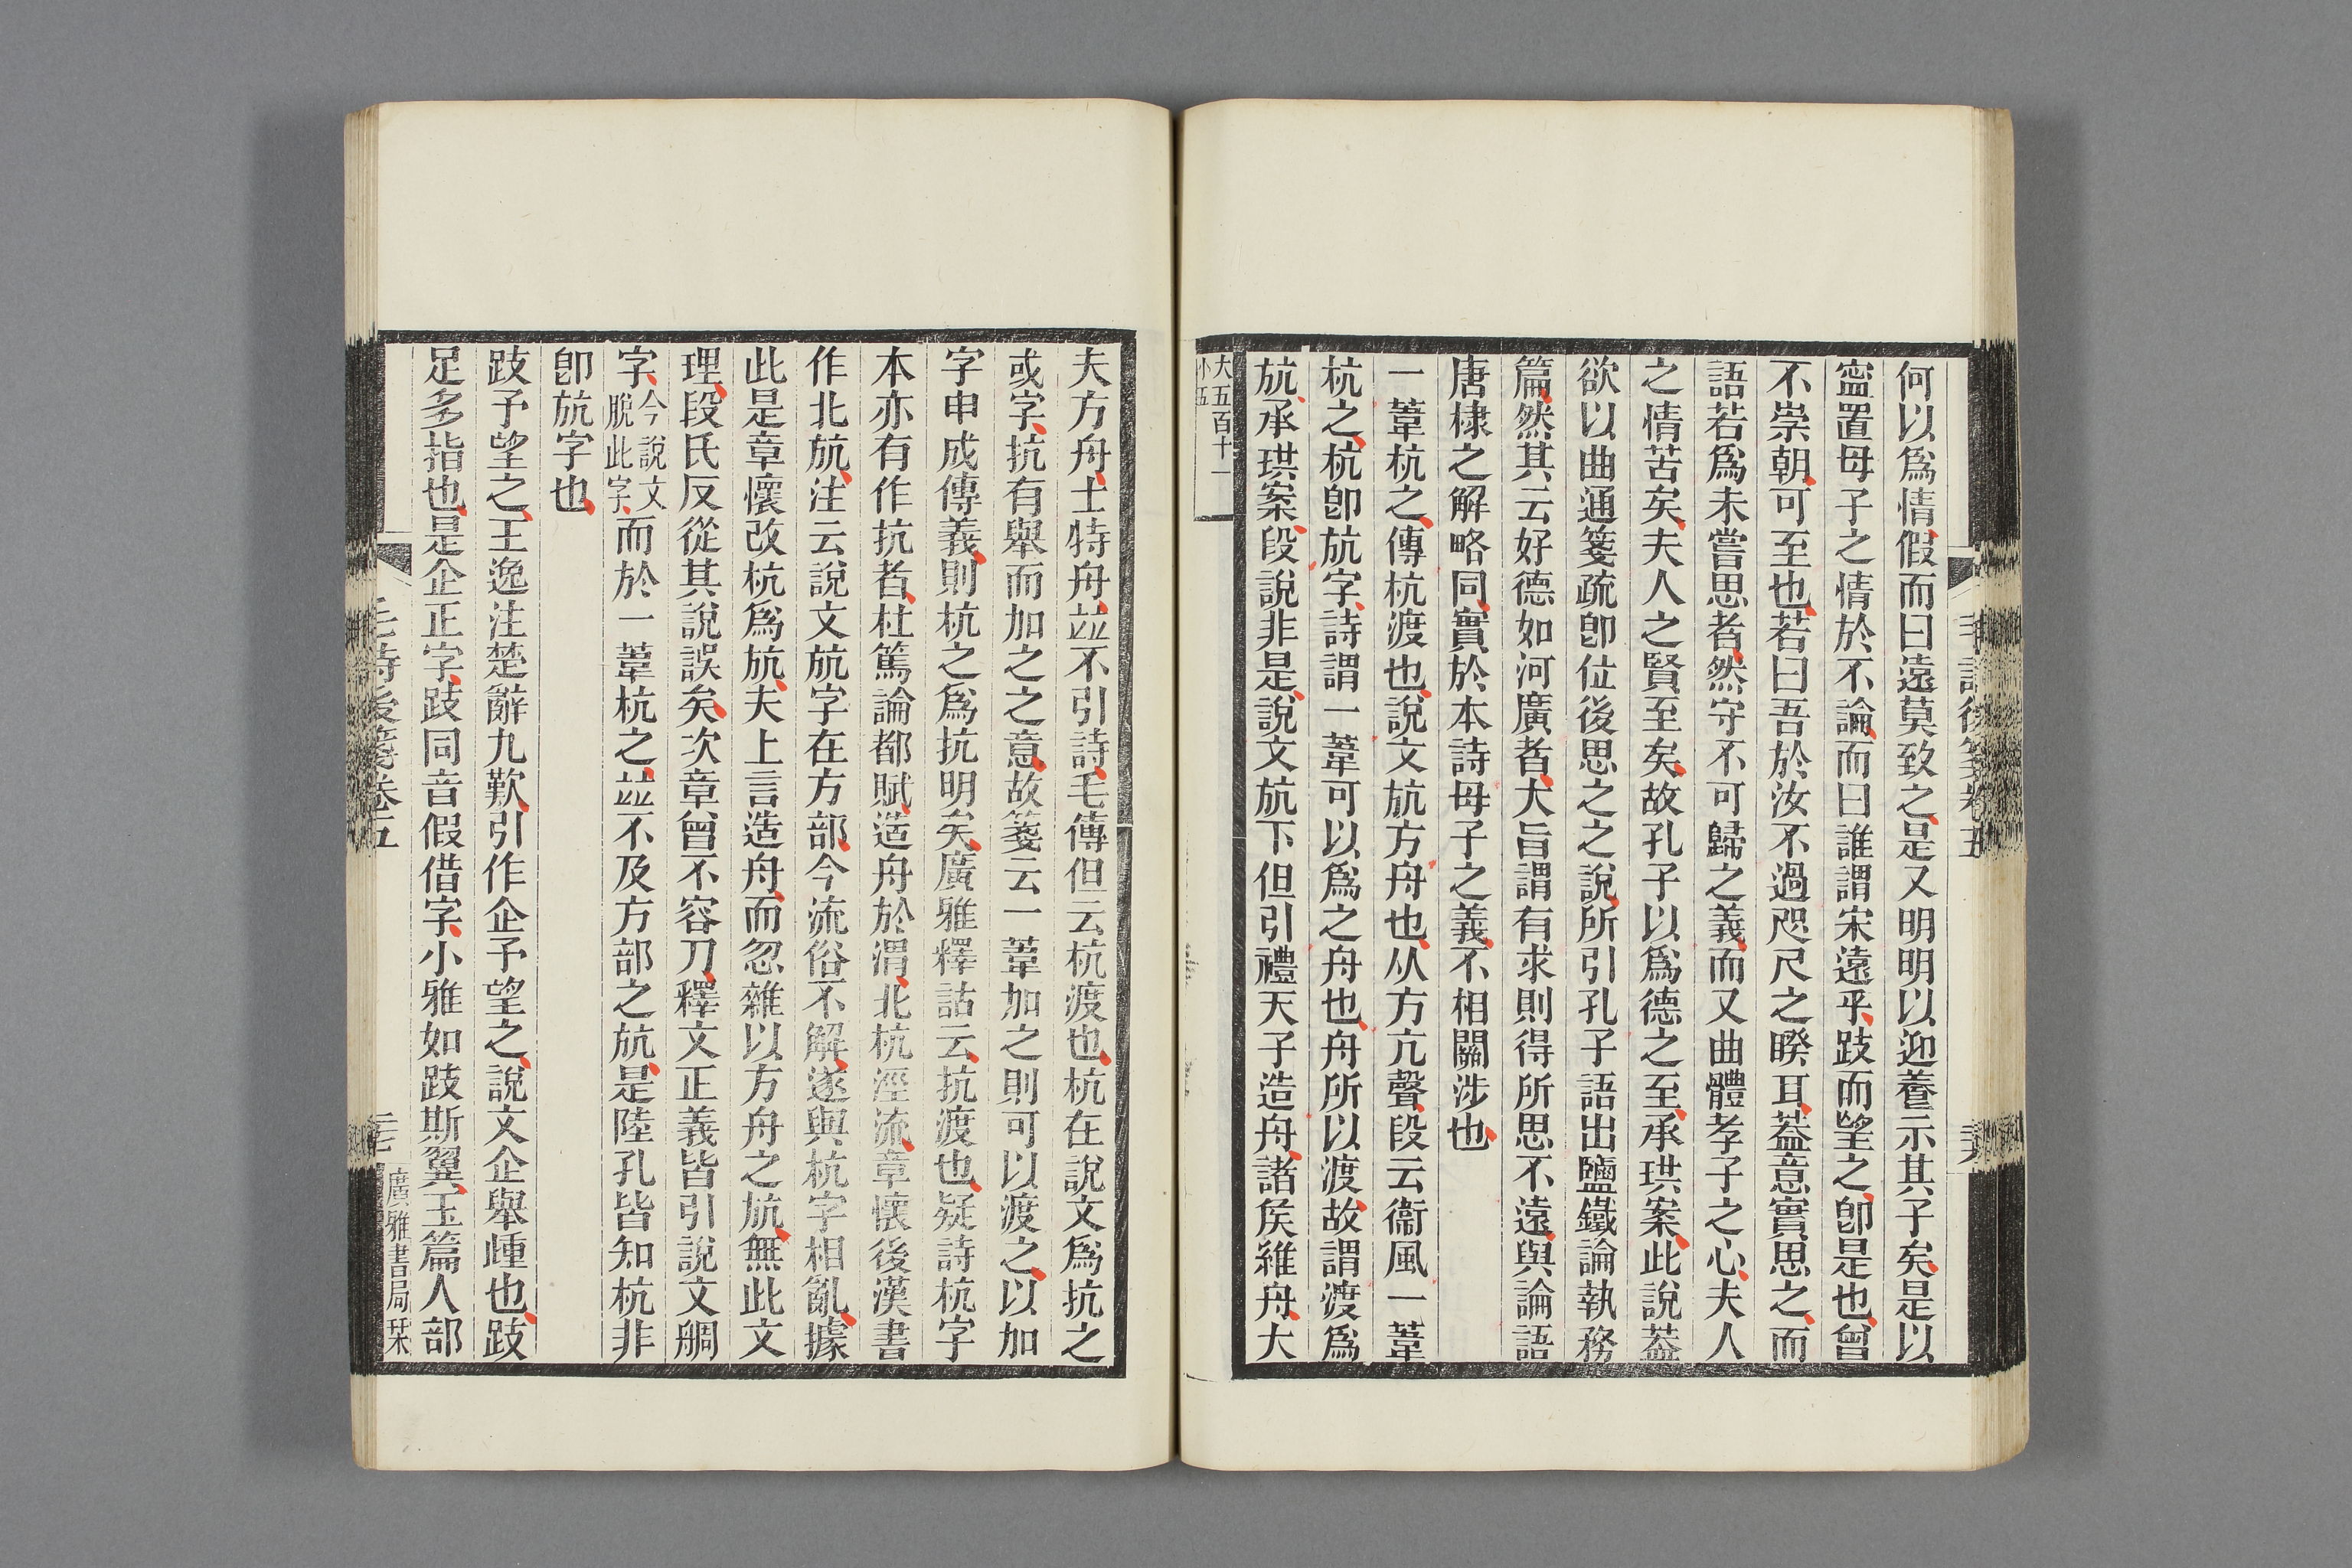 何以爲情假而曰遠莫致之是又明明以迎養示其子矣是以
寍置母子之情於不論而曰誰謂宋遠乎跂而望之卽是也曾
不崇朝可至也若曰吾於汝不過咫尺之暌耳葢意實思之而
語若爲未嘗思者然守不可歸之義而又曲體孝子之心夫人
之情苦矣夫人之賢至矣故孔子以爲德之至承珙案此說葢
欲以曲通箋疏卽位後思之之說所引孔子語出鹽鐵論執務
篇然其云好德如河廣者大旨謂有求則得所思不遠與論語
唐棣之解略同實於本詩母子之義不相關涉也
一葦杭之傳杭渡也說文斻方舟也从方亢聲段云衞風一葦
杭之杭卽斻字詩謂一葦可以爲之舟也舟所以渡故謂渡爲
斻承珙案段說非是說文斻下但引禮天子造舟諸矦維舟大
大五百十一
小五
夫方舟士特舟竝不引詩毛傳但云杭渡也杭在說文爲抗之
或字抗有舉而加之之意故箋云一葦加之則可以渡之以加
字申成傳義則杭之爲抗明矣廣雅釋詁云抗渡也疑詩杭字
本亦有作抗者杜篤論都賦造舟於渭北杭涇流章懷後漢書
作北斻注云說文斻字在方部今流俗不解遂與杭字相亂據
此是章懷改杭爲斻夫上言造舟而忽雜以方舟之斻無此文
理段氏反從其說誤矣次章曾不容刀釋文正義皆引說文鯛
字今說文脫此字而於一葦杭之竝不及方部之斻是陸孔皆知杭非
卽斻字也
跂予望之王逸注楚辭九歎引作企予望之說文企舉踵也跂
足多指也是企正字跂同音假借字小雅如跂斯翼玉篇人部
毛詩後箋卷五
廣雅書局栞